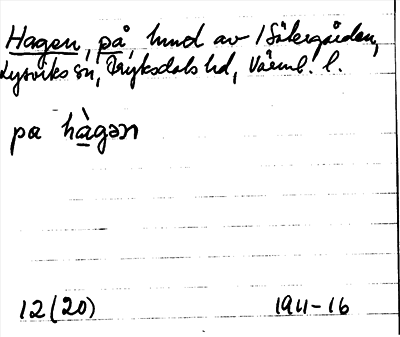 Hagen, på, hmd av 1 Sätergården,
Lysviks sn, Fryksdals hd, Värml. l.
pa hàgən
12(20) 1911-16